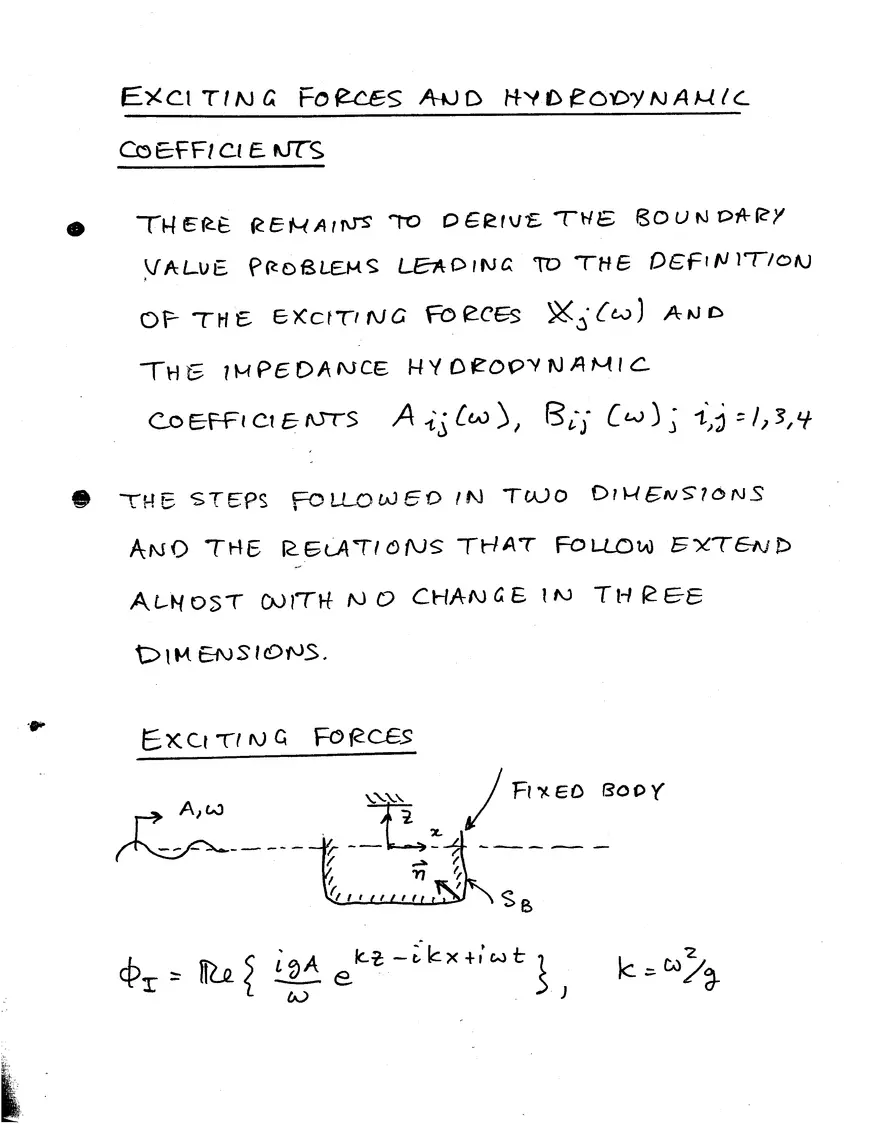 EXCITING FORCES AND HYDRODYNAMIC
COEFFICIENTS
● THERE REMAINS TO DERIVE THE BOUNDARY
VALUE PROBLEMS LEADING TO THE DEFINITION
OF THE EXCITING FORCES 𝕏j(ω) AND
THE IMPEDANCE HYDRODYNAMIC
COEFFICIENTS Aij(ω), Bij(ω); i,j = 1,3,4
● THE STEPS FOLLOWED IN TWO DIMENSIONS
AND THE RELATIONS THAT FOLLOW EXTEND
ALMOST WITH NO CHANGE IN THREE
DIMENSIONS.
EXCITING FORCES
FIXED BODY
A, ω
z
x
n⃗
SB
ΦI = Re { igA/ω e^(kz - ikx + iωt) }, k = ω²/g